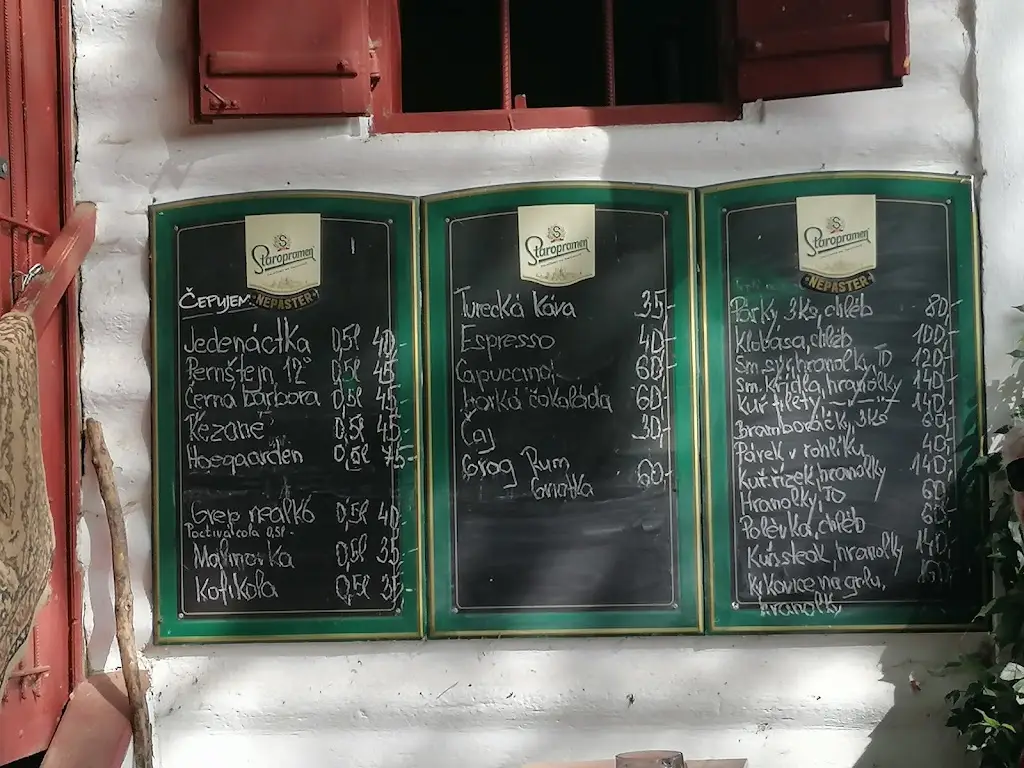 Staropramen
NEPASTER
ČEPUJEM
Jedenáctka 0,5l 40,-
Pernštejn 12° 0,5l 45,-
Černá barbora 0,5l 45,-
Řezané 0,5l 45,-
Hoegaarden 0,5l 75,-
Grep nealko 0,5l 40,-
Poctivá cola 0,5l -
Malinovka 0,5l 35,-
Kofikola 0,5l 35,-
Staropramen
Turecká káva 35,-
Espresso 40,-
Capuccino 60,-
Horká čokoláda 60,-
Čaj 30,-
Grog Rum 60,-
Griotka
Staropramen
NEPASTER
Párky 3ks, chléb 80,-
Klobása, chléb 100,-
Sm. sýr, hranolky, TO 120,-
Sm. křídla, hranolky 140,-
Kuř. filety, 140,-
Bramboráčky, 3ks 60
Párek v rohlíku 40,-
Kuř. řízek, hranolky 140,-
Hranolky, TO 60,-
Polévka, chléb 60,-
Kuř. steak, hranolky 140,-
Krkovice na grilu,
hranolky